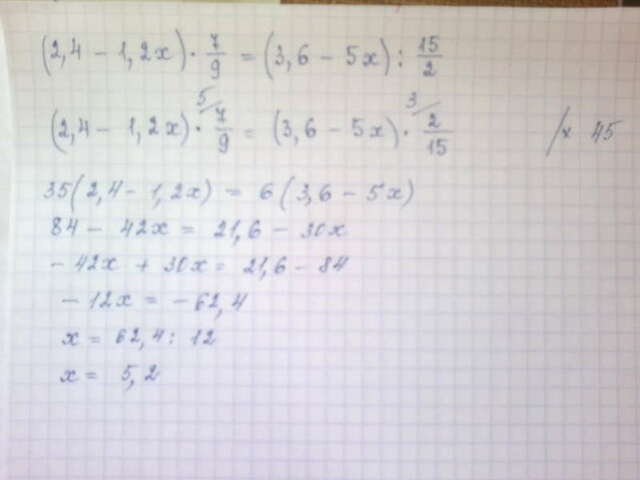 (2,4 - 1,2x) · 7/9 = (3,6 - 5x) : 15/2
(2,4 - 1,2x) · 5/ 7/9 = (3,6 - 5x) · 3/ 2/15 /× 45
35(2,4 - 1,2x) = 6(3,6 - 5x)
84 - 42x = 21,6 - 30x
- 42x + 30x = 21,6 - 84
- 12x = - 62,4
x = 62,4 : 12
x = 5,2